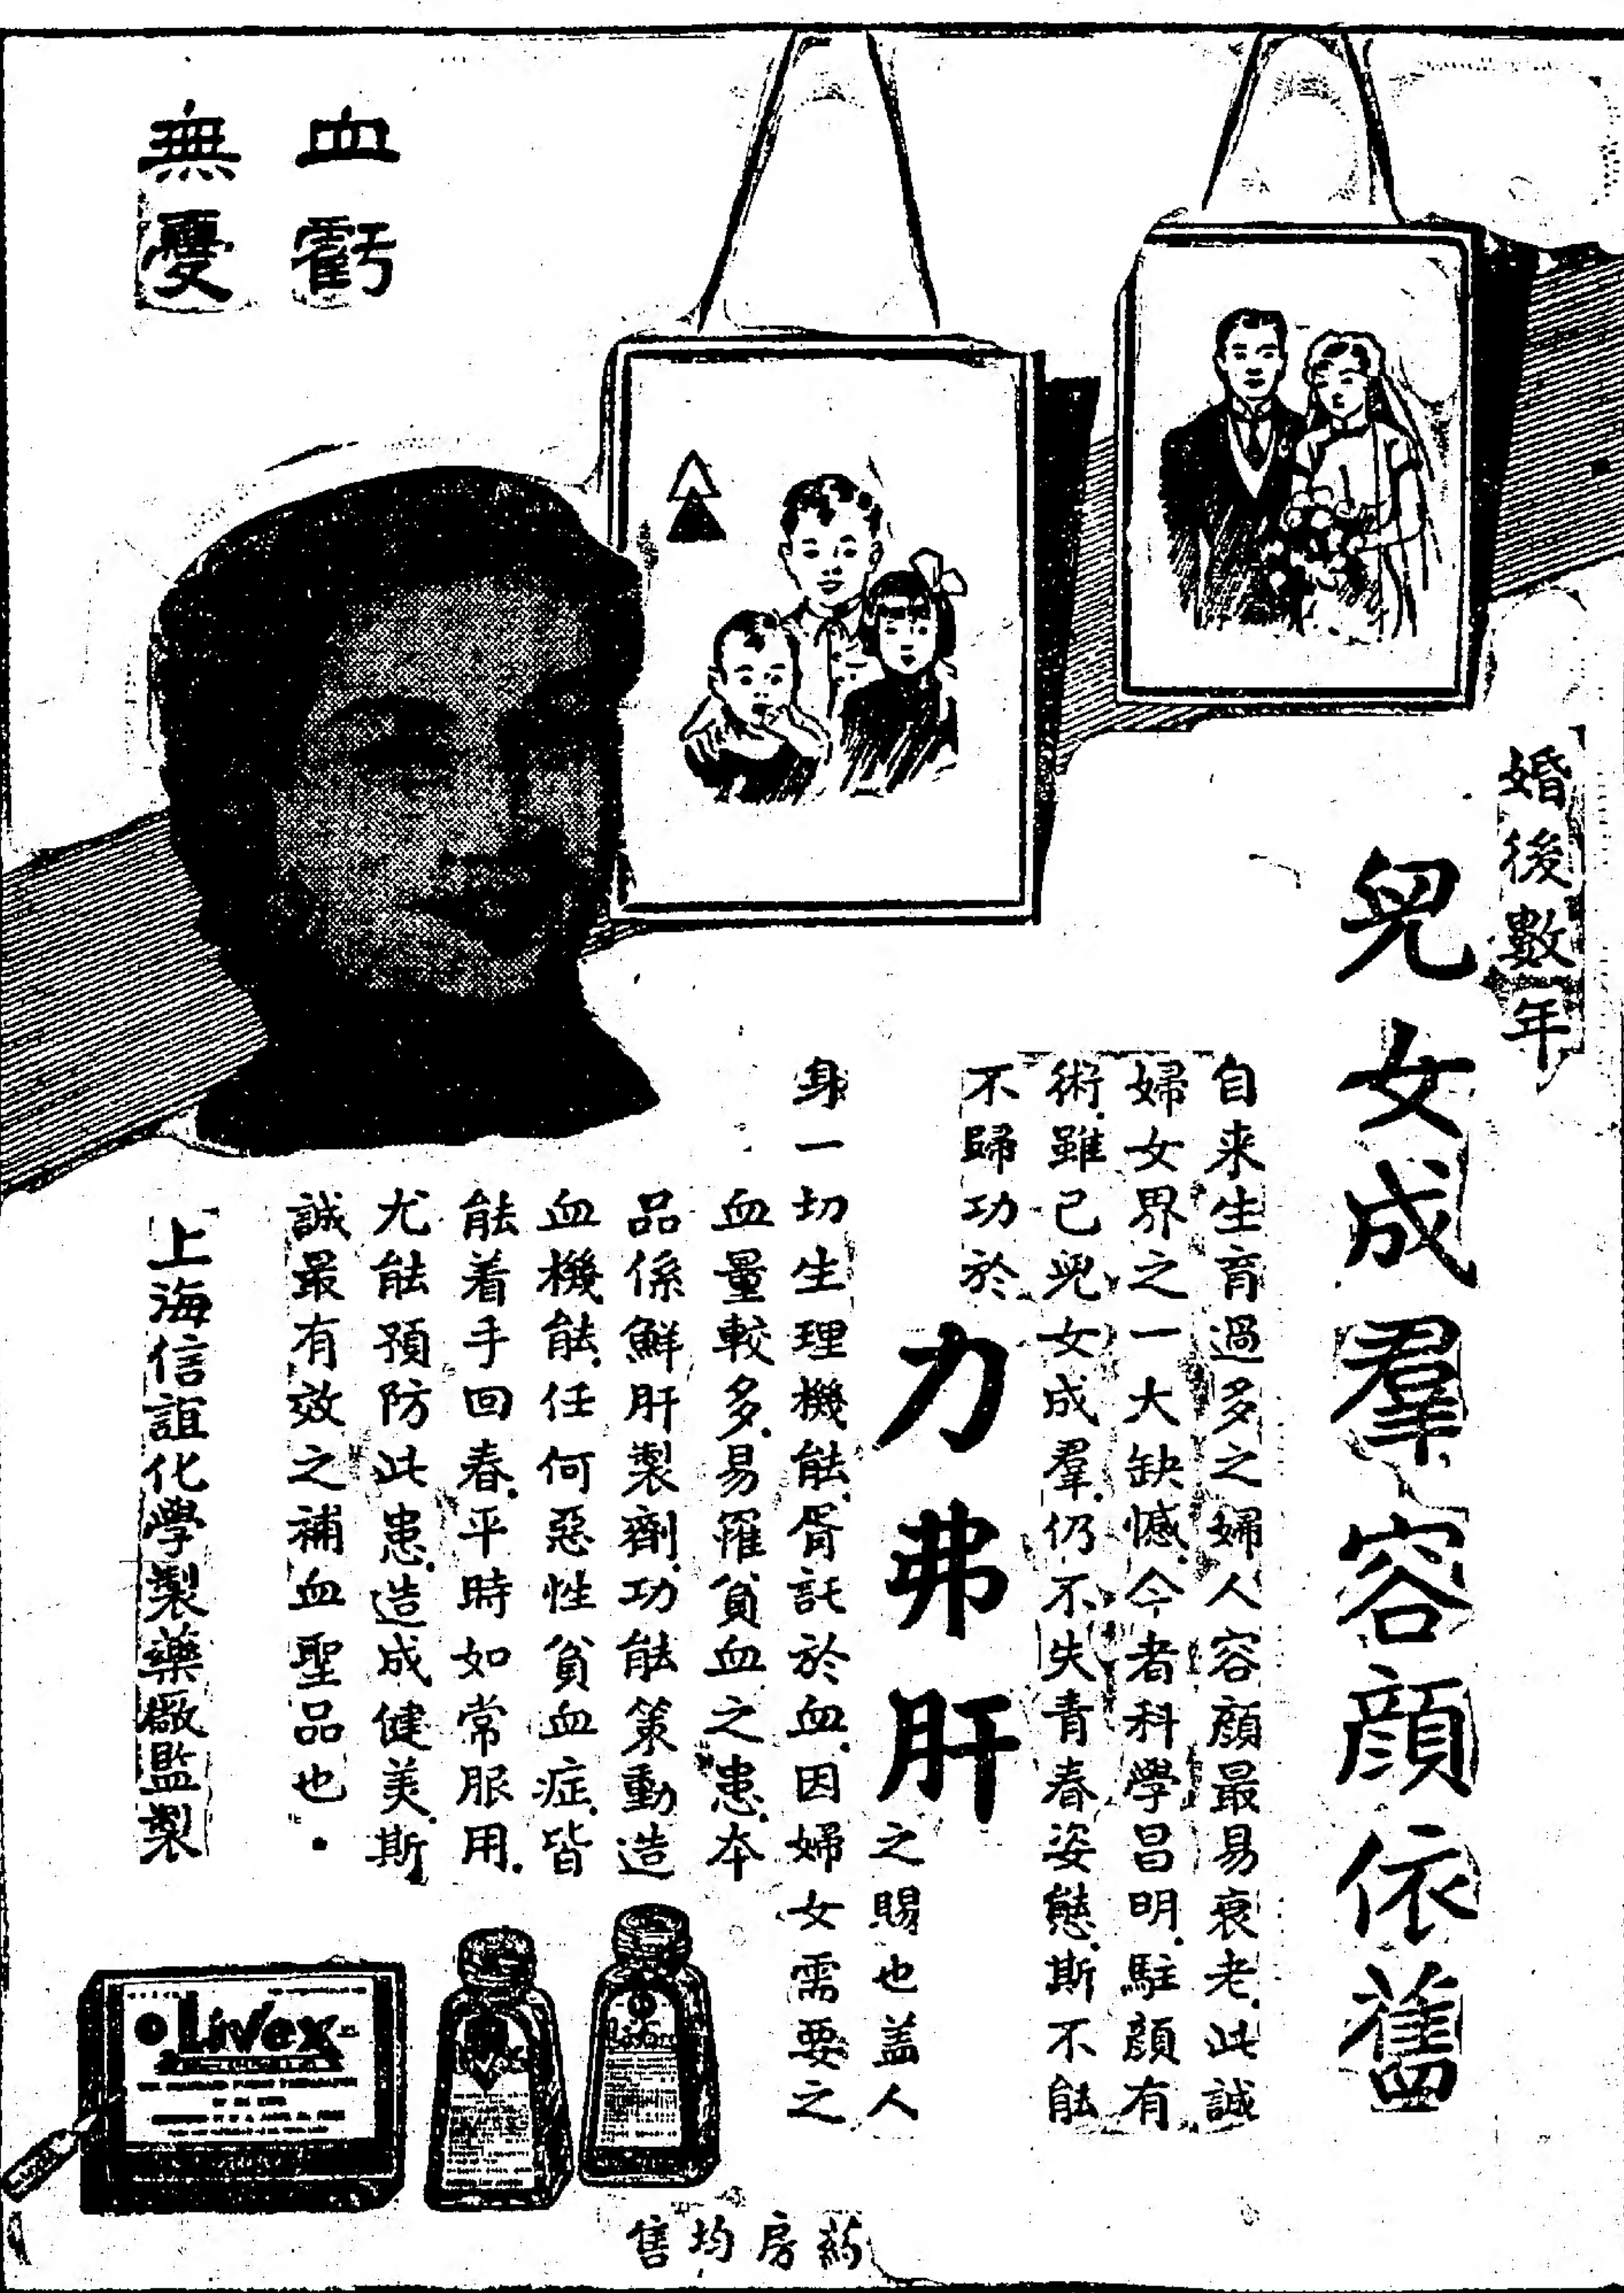 婚後數年
兒女成羣容顏依舊
自来生育過多之婦人容顏最易衰老.此誠
婦女界之一大缺憾.今者科學昌明.駐顏有
術.雖已兒女成羣.仍不失青春姿態.斯不能
不歸功於
力弗肝
之賜也蓋人
身一切生理機能.胥託於血.因婦女需要之
血量較多.易罹貧血之患.本
品係鮮肝製劑.功能策動造
血機能.任何惡性貧血症.皆
能着手回春.平時如常服用.
尤能預防此患.造成健美.斯
誠最有效之補血聖品也.
上海信誼化學製藥廠監製
血虧
無憂
Livex
藥房均售